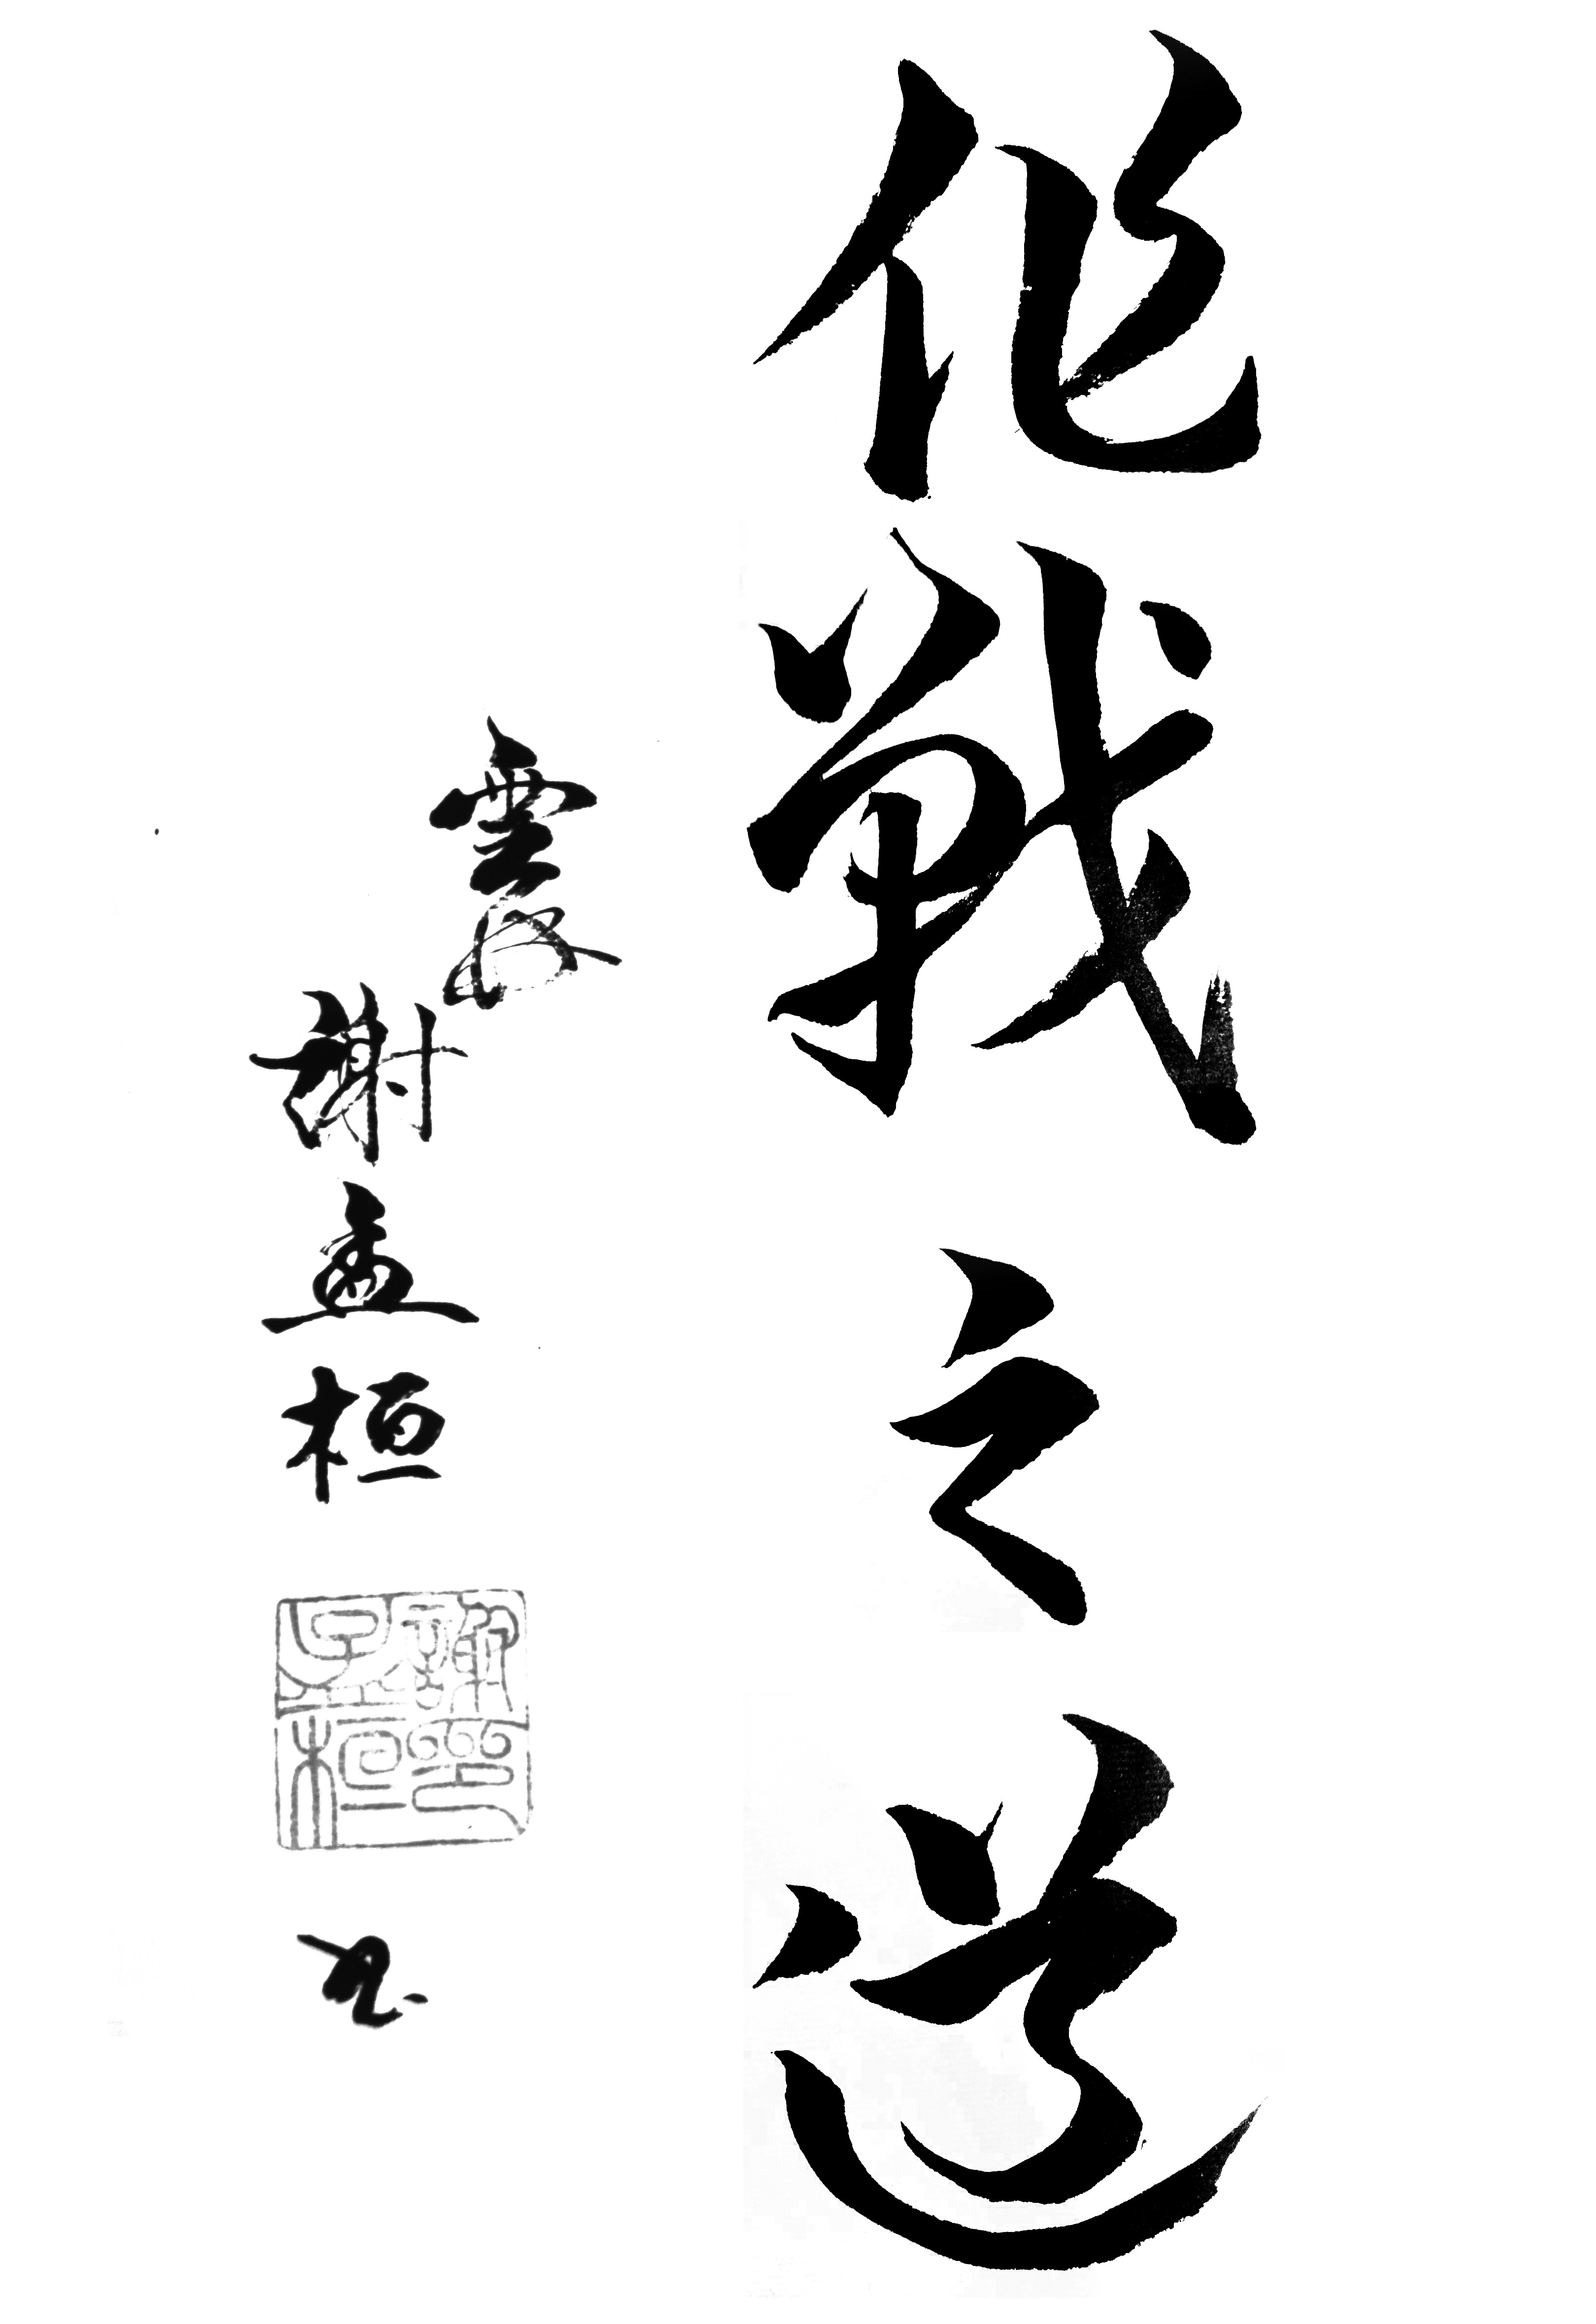 化戰之道
雲
謝孟桓
謝印孟桓
書